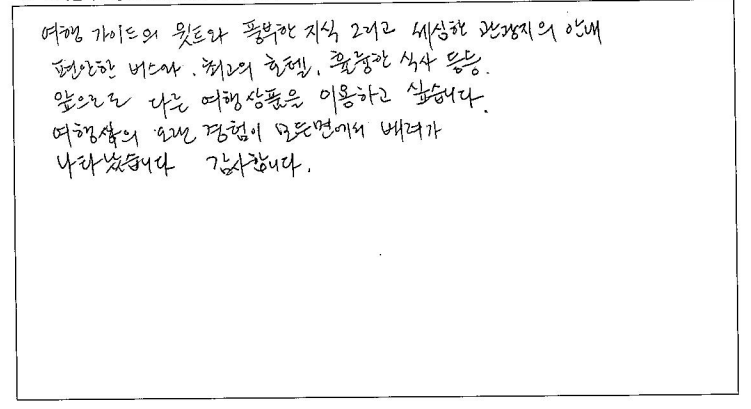 여행 가이드의 윗트와 풍부한 지식 그리고 세심한 관광지의 안내
편안한 버스와, 최고의 호텔, 훌륭한 식사 등등.
앞으로도 다른 여행상품을 이용하고 싶습니다.
여행사의 오랜 경험이 모든면에서 배려가
나타났습니다 감사합니다.